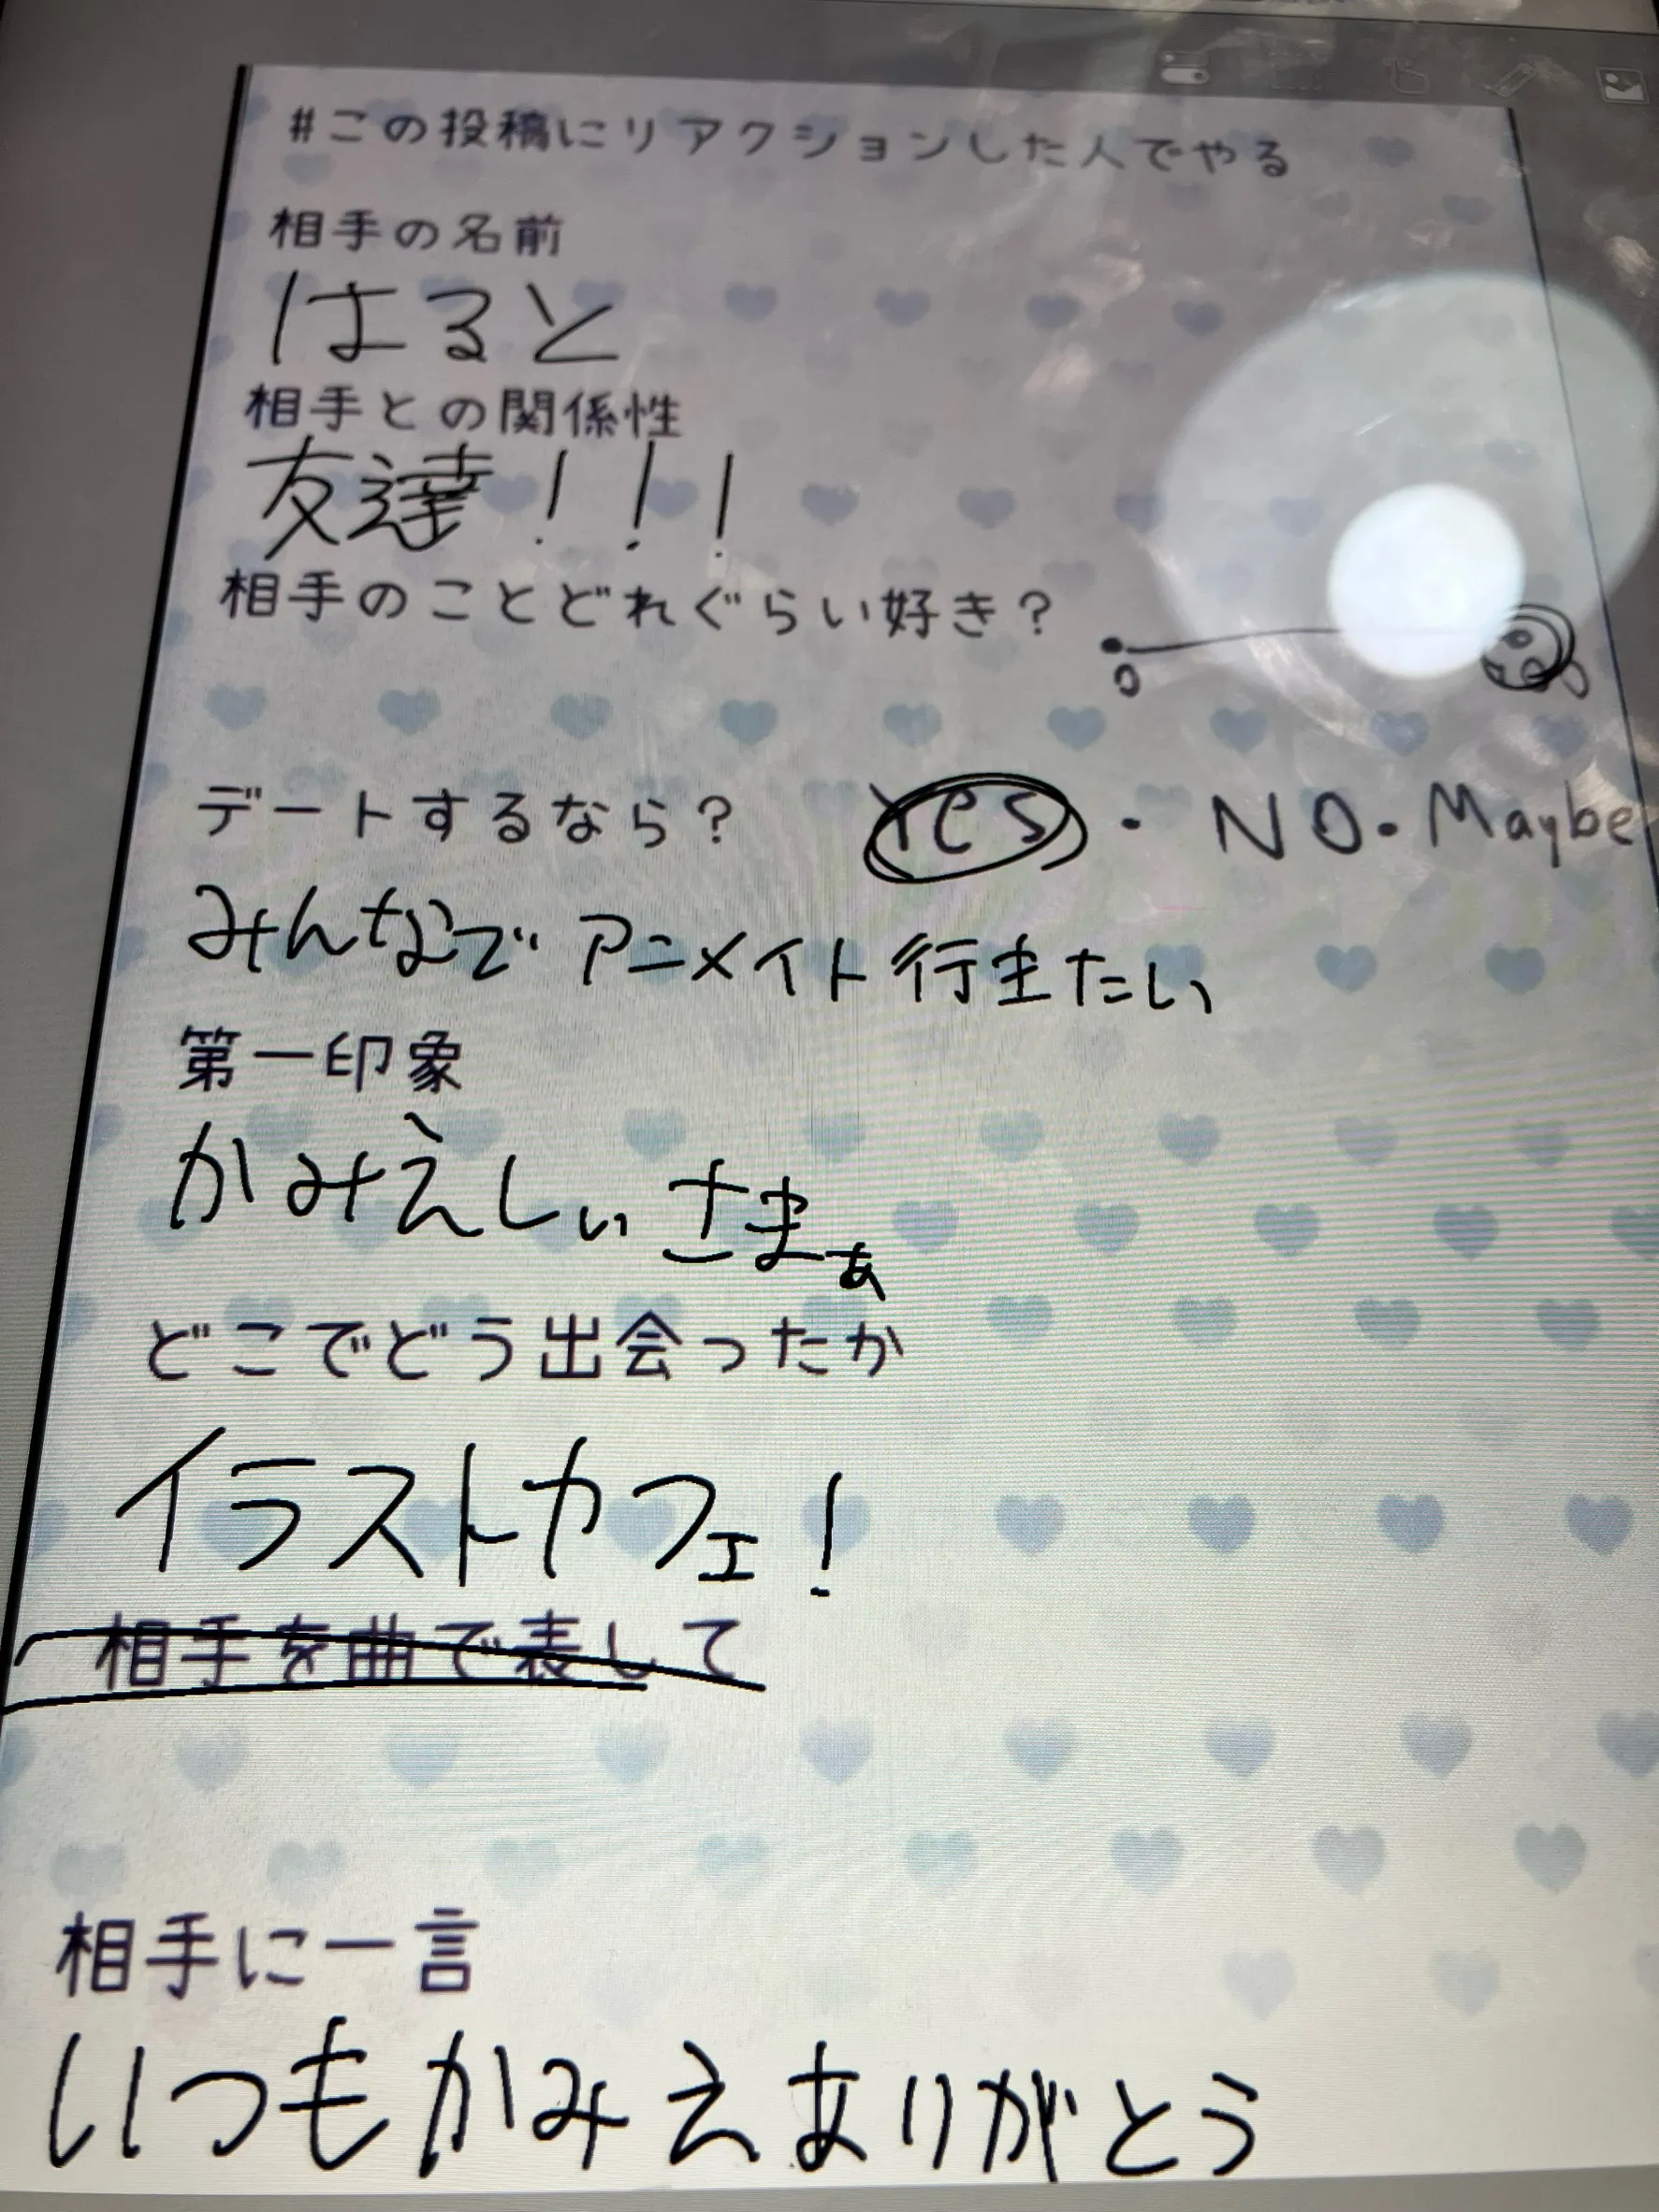 #この投稿にリアクションした人でやる
相手の名前
はると
相手との関係性
友達!!!
相手のことどれぐらい好き?
0
デートするなら? Yes・NO・Maybe
みんなでアニメイト行きたい
第一印象
かみえしぃさまぁ
どこでどう出会ったか
イラストカフェ!
相手を曲で表して
相手に一言
いつもかみえありがとう